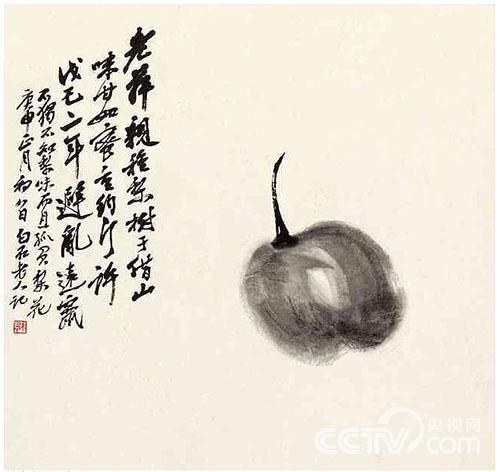 老萍親種梨樹于借山
味甘如蜜重約斤許
戊己二年避亂遠竄
不獨不知梨味而且孤負梨花
庚申正月初八日白石老人記
央视网
CCTV.com